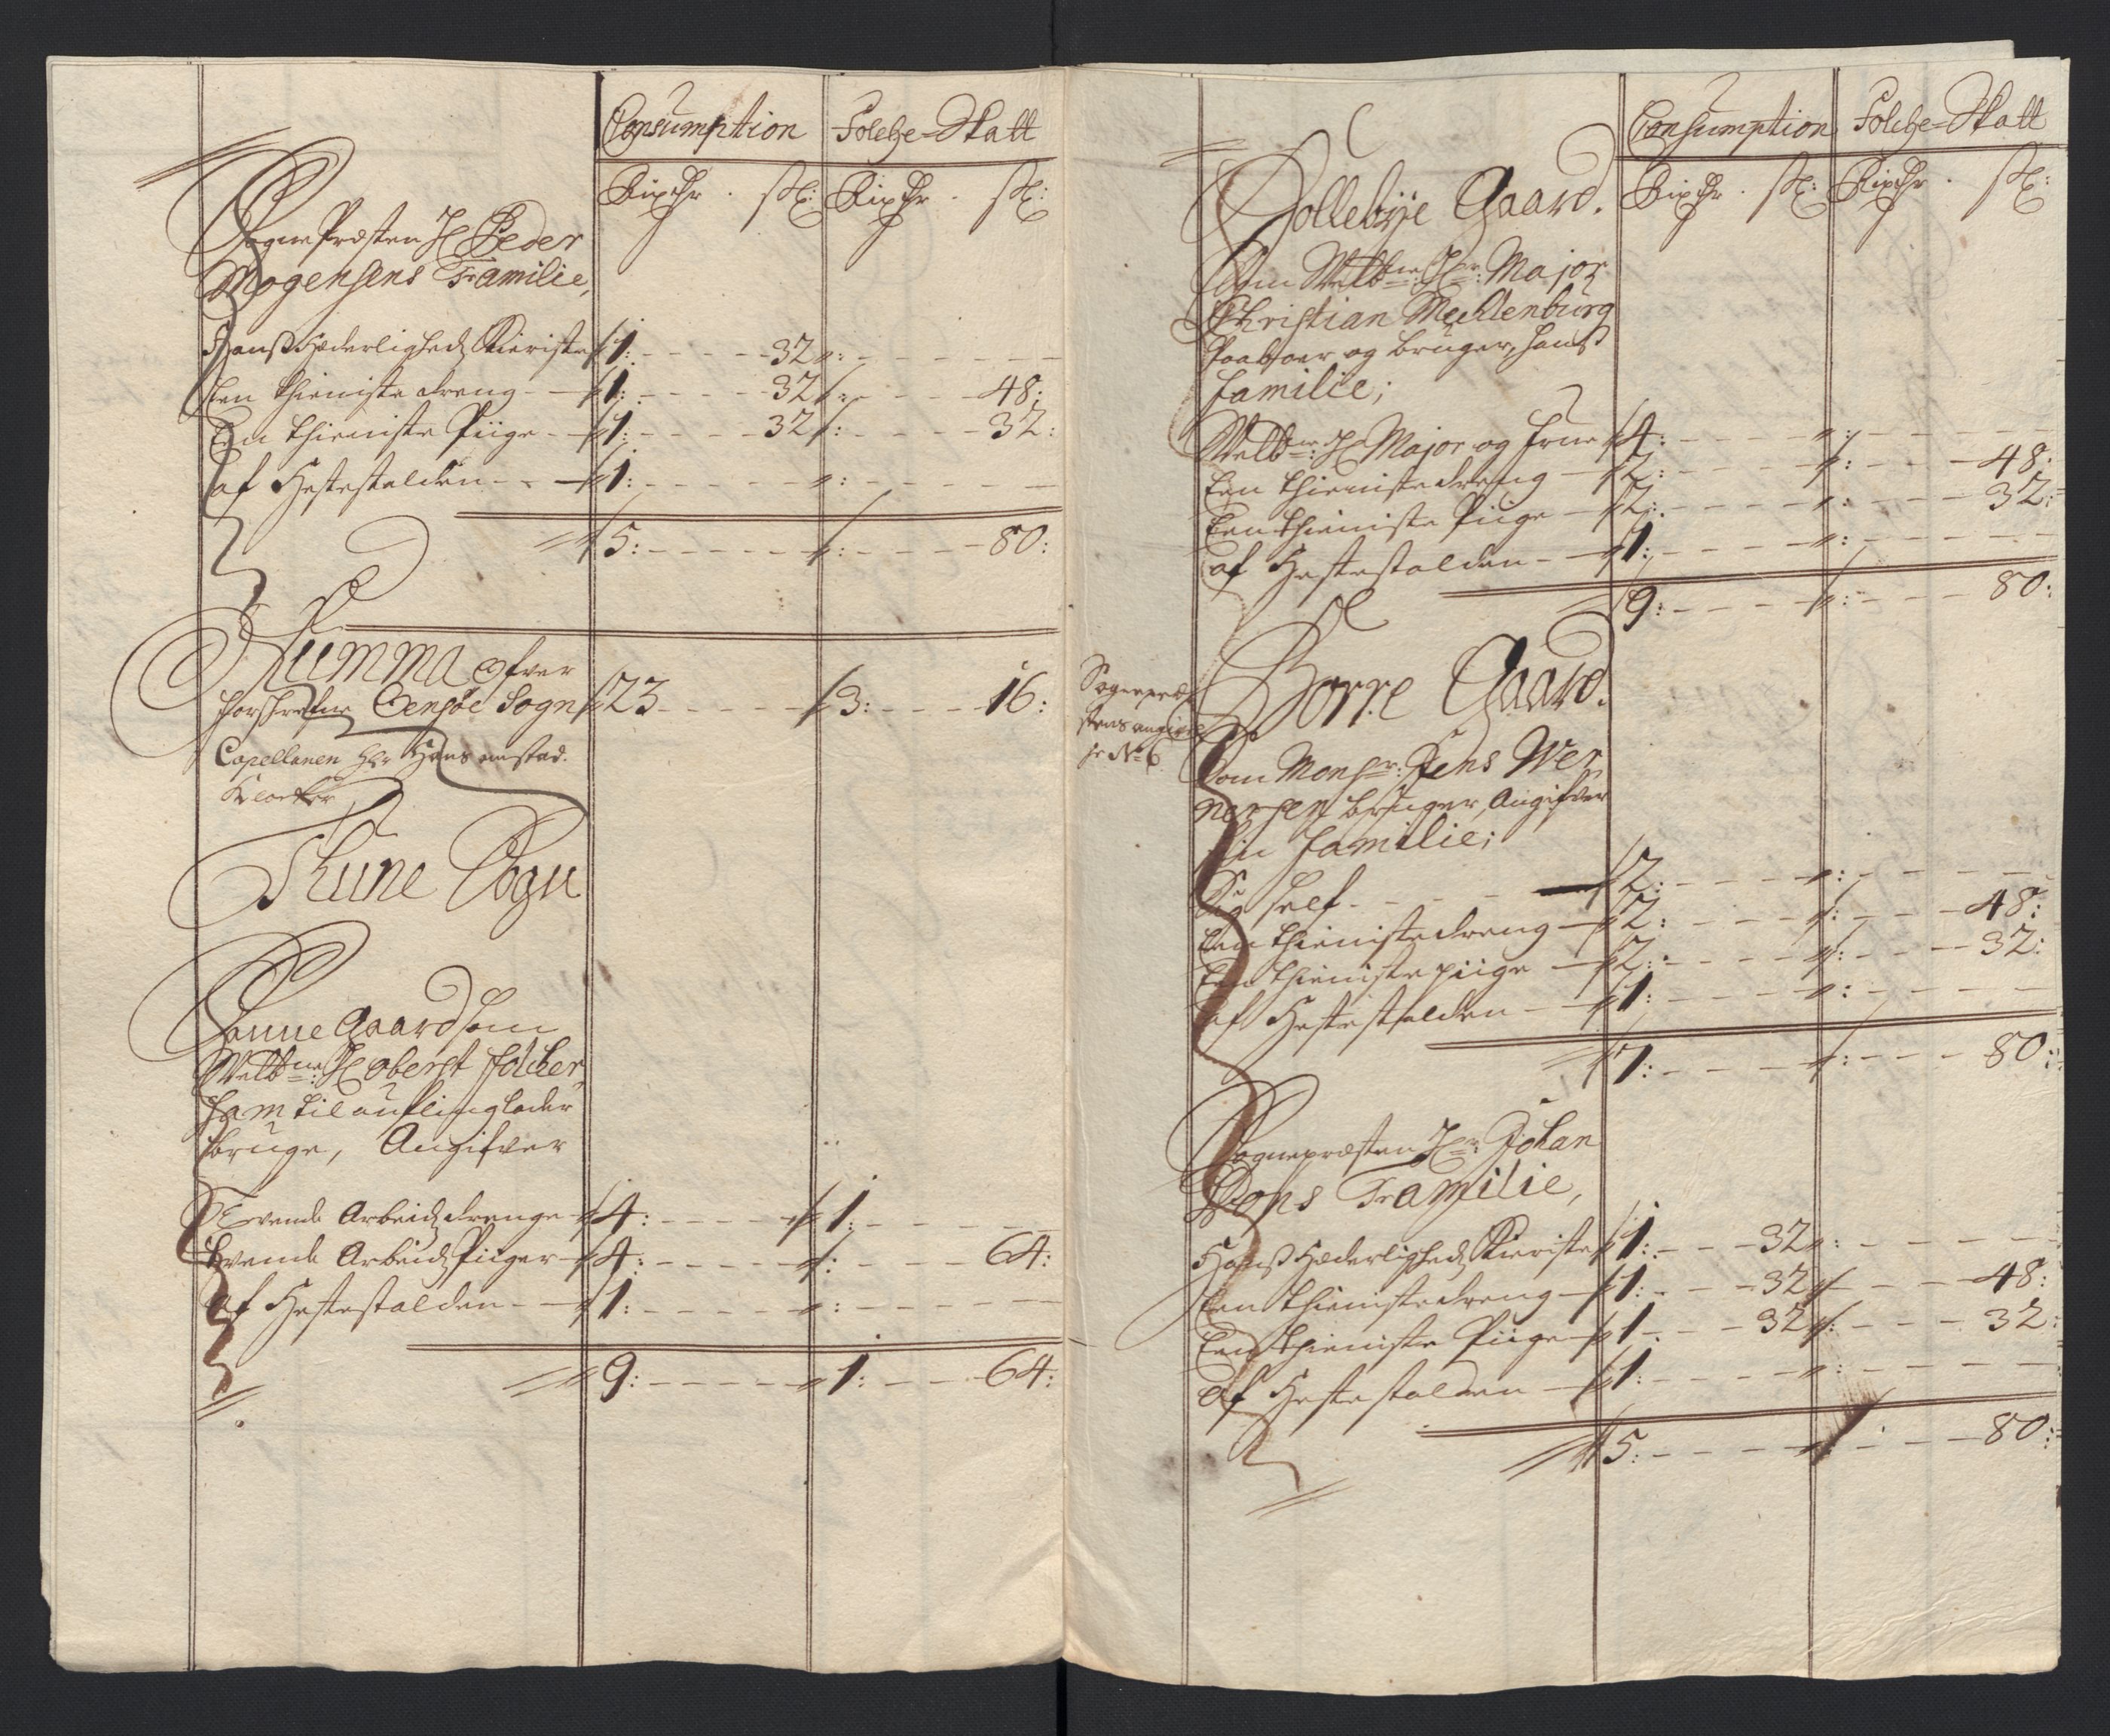 Consumption Folche-Skatt
Rixdlr. sk: Rixdlr. sk:
Sogne Præsten Hr Peder
Mogensens Familie,
Hanß Hæderligheds Kieriste 1: 32 „:
Een thieniste dreng 1: 32 „: 48:
Een thieniste Piige 1: 32 „: 32:
af Hestestalden 1: „:
5: „: 80:
Summa ofver
forschrefne Eensøe Sogn 23 3: 16:
Capellanen Hr Hans anstad.
Klocker
Skune Sogn
Sonne Gaard som
Welbne: Hr oberst Folcher,
ham til aufling lader
bruge, Angifver
Tvende Arbeidsdrenge 4: 1:
tvende Arbeids Piiger 4: „: 64:
af Hestestalden 1: „:
9: 1: 64:
Consumption Folche-Skatt
Rixdlr. sk: Rixdlr. sk:
Sollebye Gaard.
Som Welbne: Hr: Major
Christian Mecklenburg
Paaboer og bruger, hanß
familie;
Welbne: Hr Major og Frue 4: „:
Een thienistedreng 2: „: 48:
Een thieniste Piige 2: „: 32:
af Hestestalden 1: „:
9: „: 80:
Borre Gaard.
Sognepræ
stens angivel
se No 6
Som Monsr: Jens Wer,
nersen bruger, Angifver
sin familie;
Sig self 2: „:
Een thienistedreng 2: „: 48:
Een thieniste piige 2: „: 32:
af Hestestalden 1: „:
7: „: 80:
Sognepræsten Hr: Johan
Familie,
Hanß Hæderligheds Kieriste 1: 32 „:
Een thienistedreng 1: 32 „ 48:
Een thieniste Piige 1: 32 „: 32:
af Hestestalden 1: „:
5: „: 80: